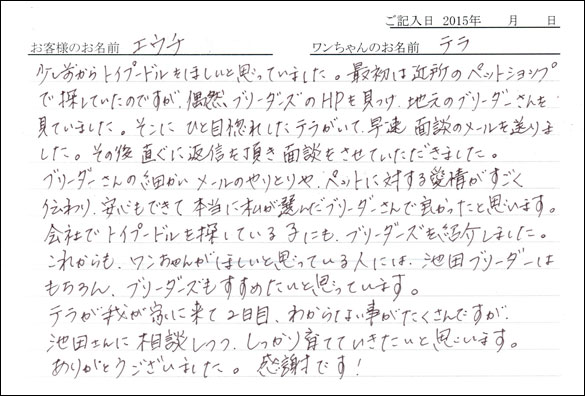 ご記入日 2015年 月 日
お客様のお名前 エウチ ワンちゃんのお名前 テラ
少し前からトイプードルをほしいと思っていました。最初は近所のペットショップ
で探していたのですが、偶然、ブリーダーズのHPを見つけ、地元のブリーダーさんを
見ていました。そこに ひと目惚れしたテラがいて、早速 面談のメールを送りま
した。その後 直ぐに返信を頂き 面談をさせていただきました。
ブリーダーさんの細かい メールのやりとりや、ペットに対する愛情がすごく
伝わり、安心もできて 本当に私が選んだブリーダーさんで良かったと思います。
会社で トイプードルを探している子にも、ブリーダーズを紹介しました。
これからも、ワンちゃんがほしいと思っている人には、池田ブリーダーは
もちろん、ブリーダーズもすすめたいと思っています。
テラが我が家に来て 2日目、わからない事がたくさんですが、
池田さんに 相談しつつ、しっかり育てていきたいと思います。
ありがとうございました。 感謝です!